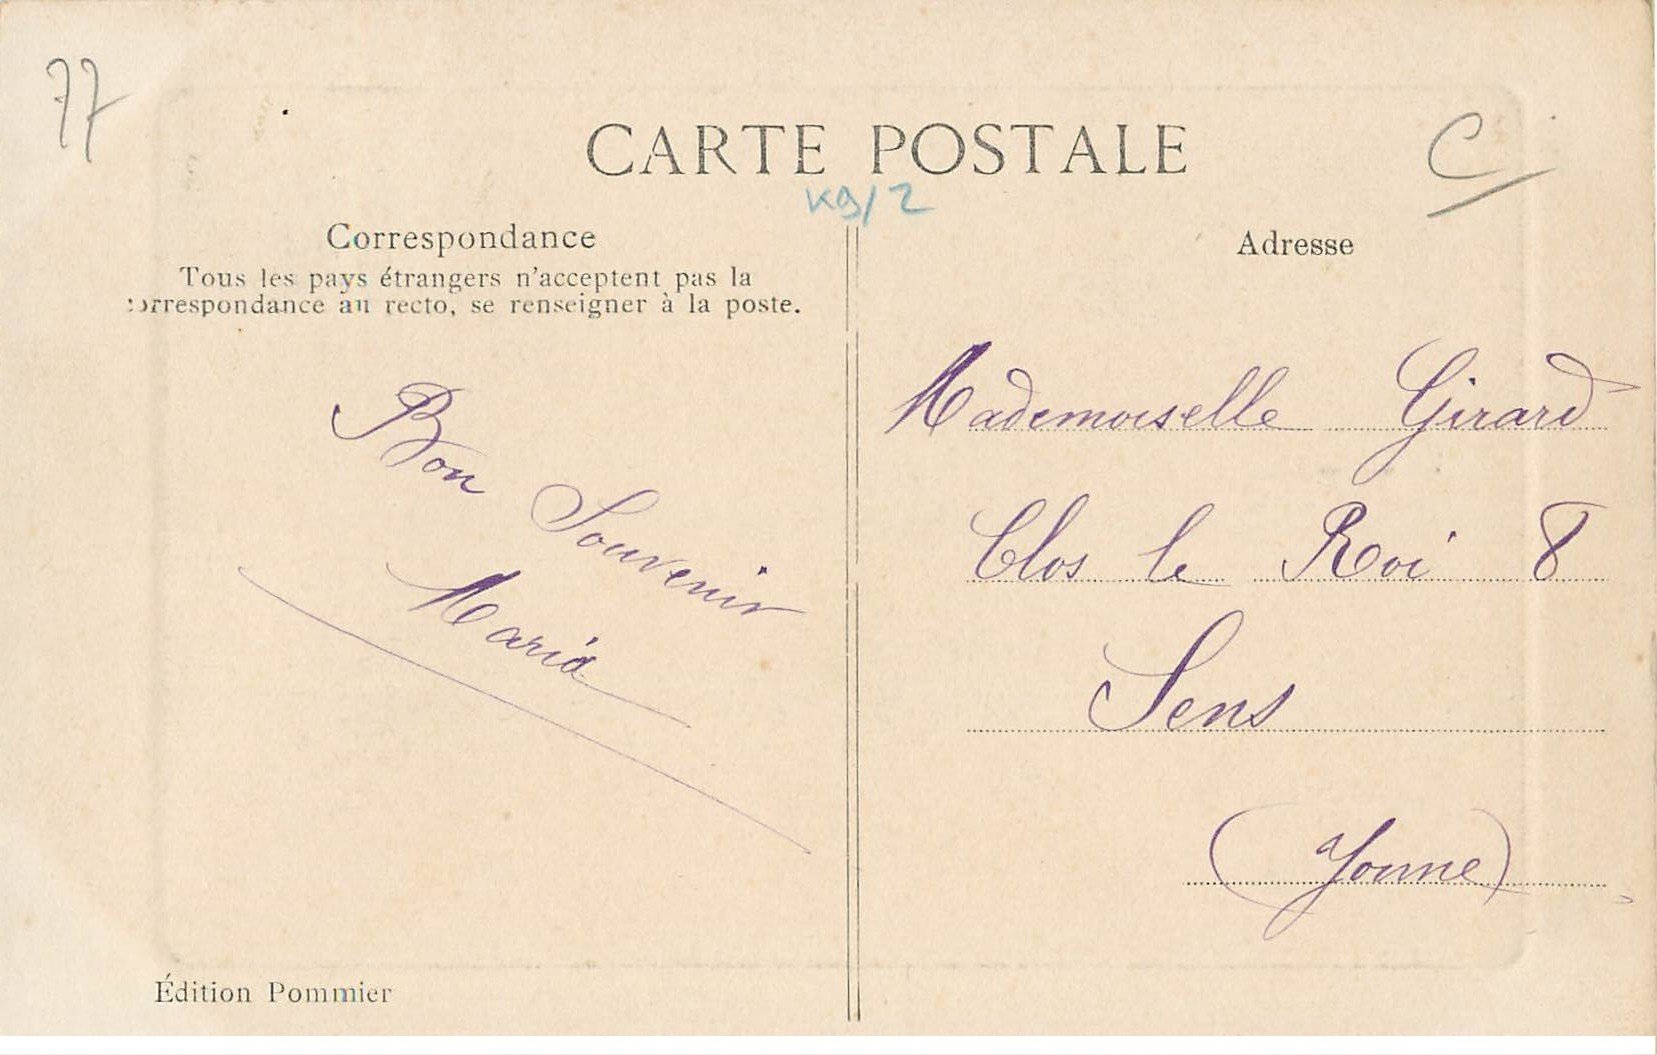 77
CARTE POSTALE
C
K9/2
Correspondance
Tous les pays étrangers n'acceptent pas la
correspondance au recto, se renseigner à la poste.
Adresse
Bon Souvenir
Maria
Mademoiselle Girard
Clos le Roi 8
Sens
(Yonne)
Édition Pommier